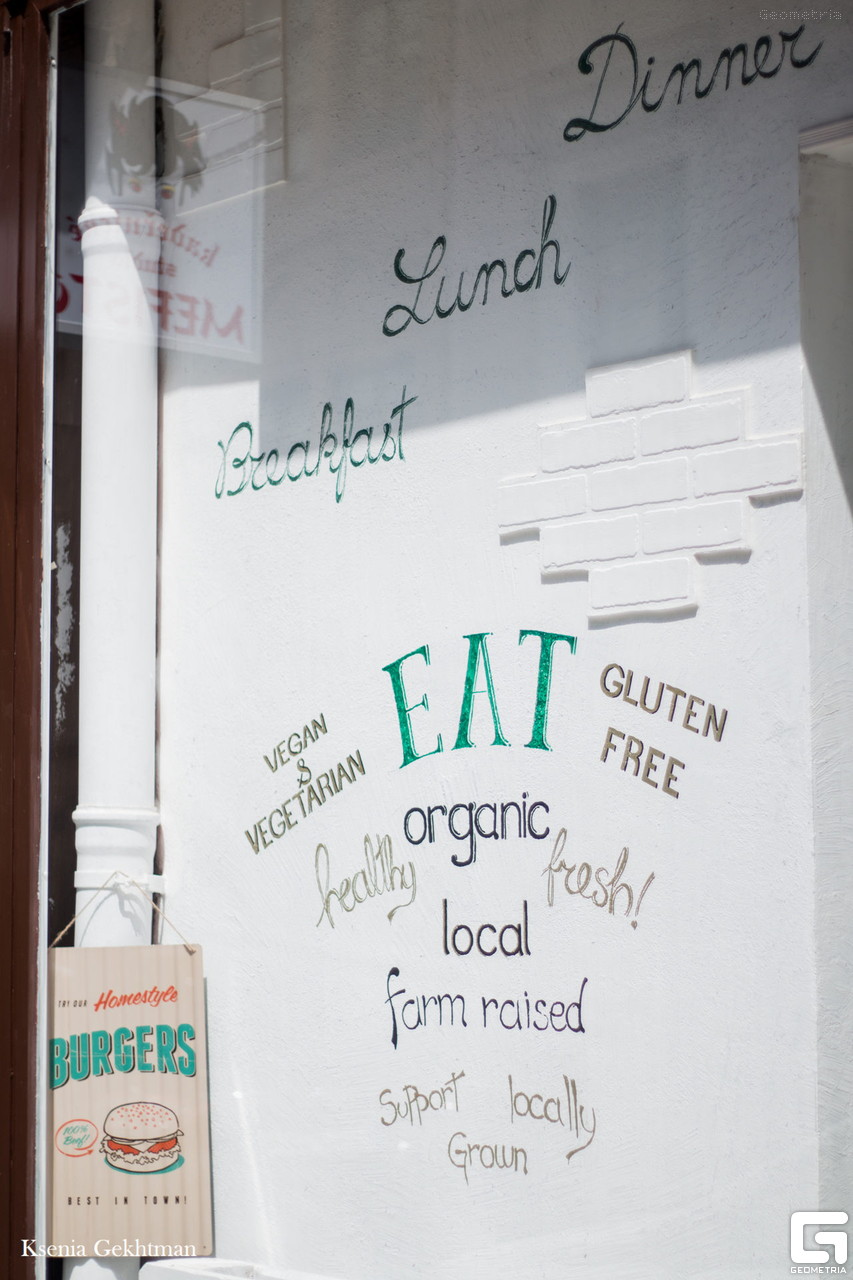 Geometria
Dinner
Lunch
Breakfast
EAT
GLUTEN
FREE
VEGAN
&
VEGETARIAN
organic
healthy
fresh!
local
farm raised
support locally
Grown
TRY OUR Homestyle
BURGERS
100%
Beef!
BEST IN TOWN!
Ksenia Gekhtman
GEOMETRIA